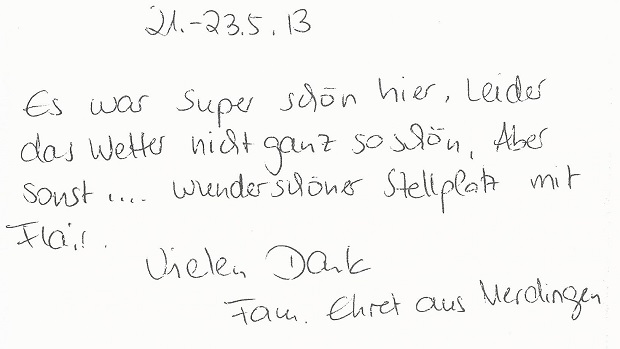 21.-23.5.13
Es war super schön hier, Leider
das Wetter nicht ganz so schön, Aber
sonst .... wunderschöner Stellplatz mit
Flair.
Vielen Dank
Fam. Ehret aus Merdingen